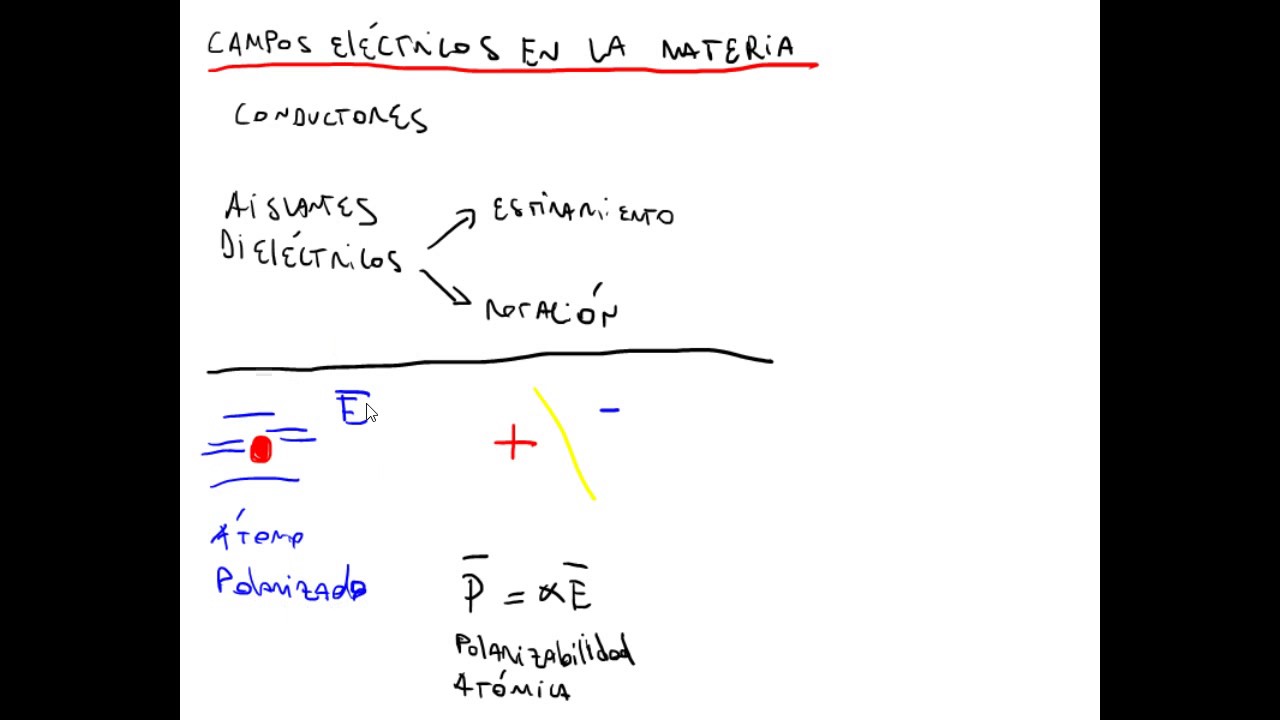 CAMPOS ELÉCTRICOS EN LA MATERIA
CONDUCTORES
AISLANTES
DIELÉCTRICOS
ESTIRAMIENTO
ROTACIÓN
E
+ -
ÁTOMO
Polarizado
P = αE
POLARIZABILIDAD
ATÓMICA